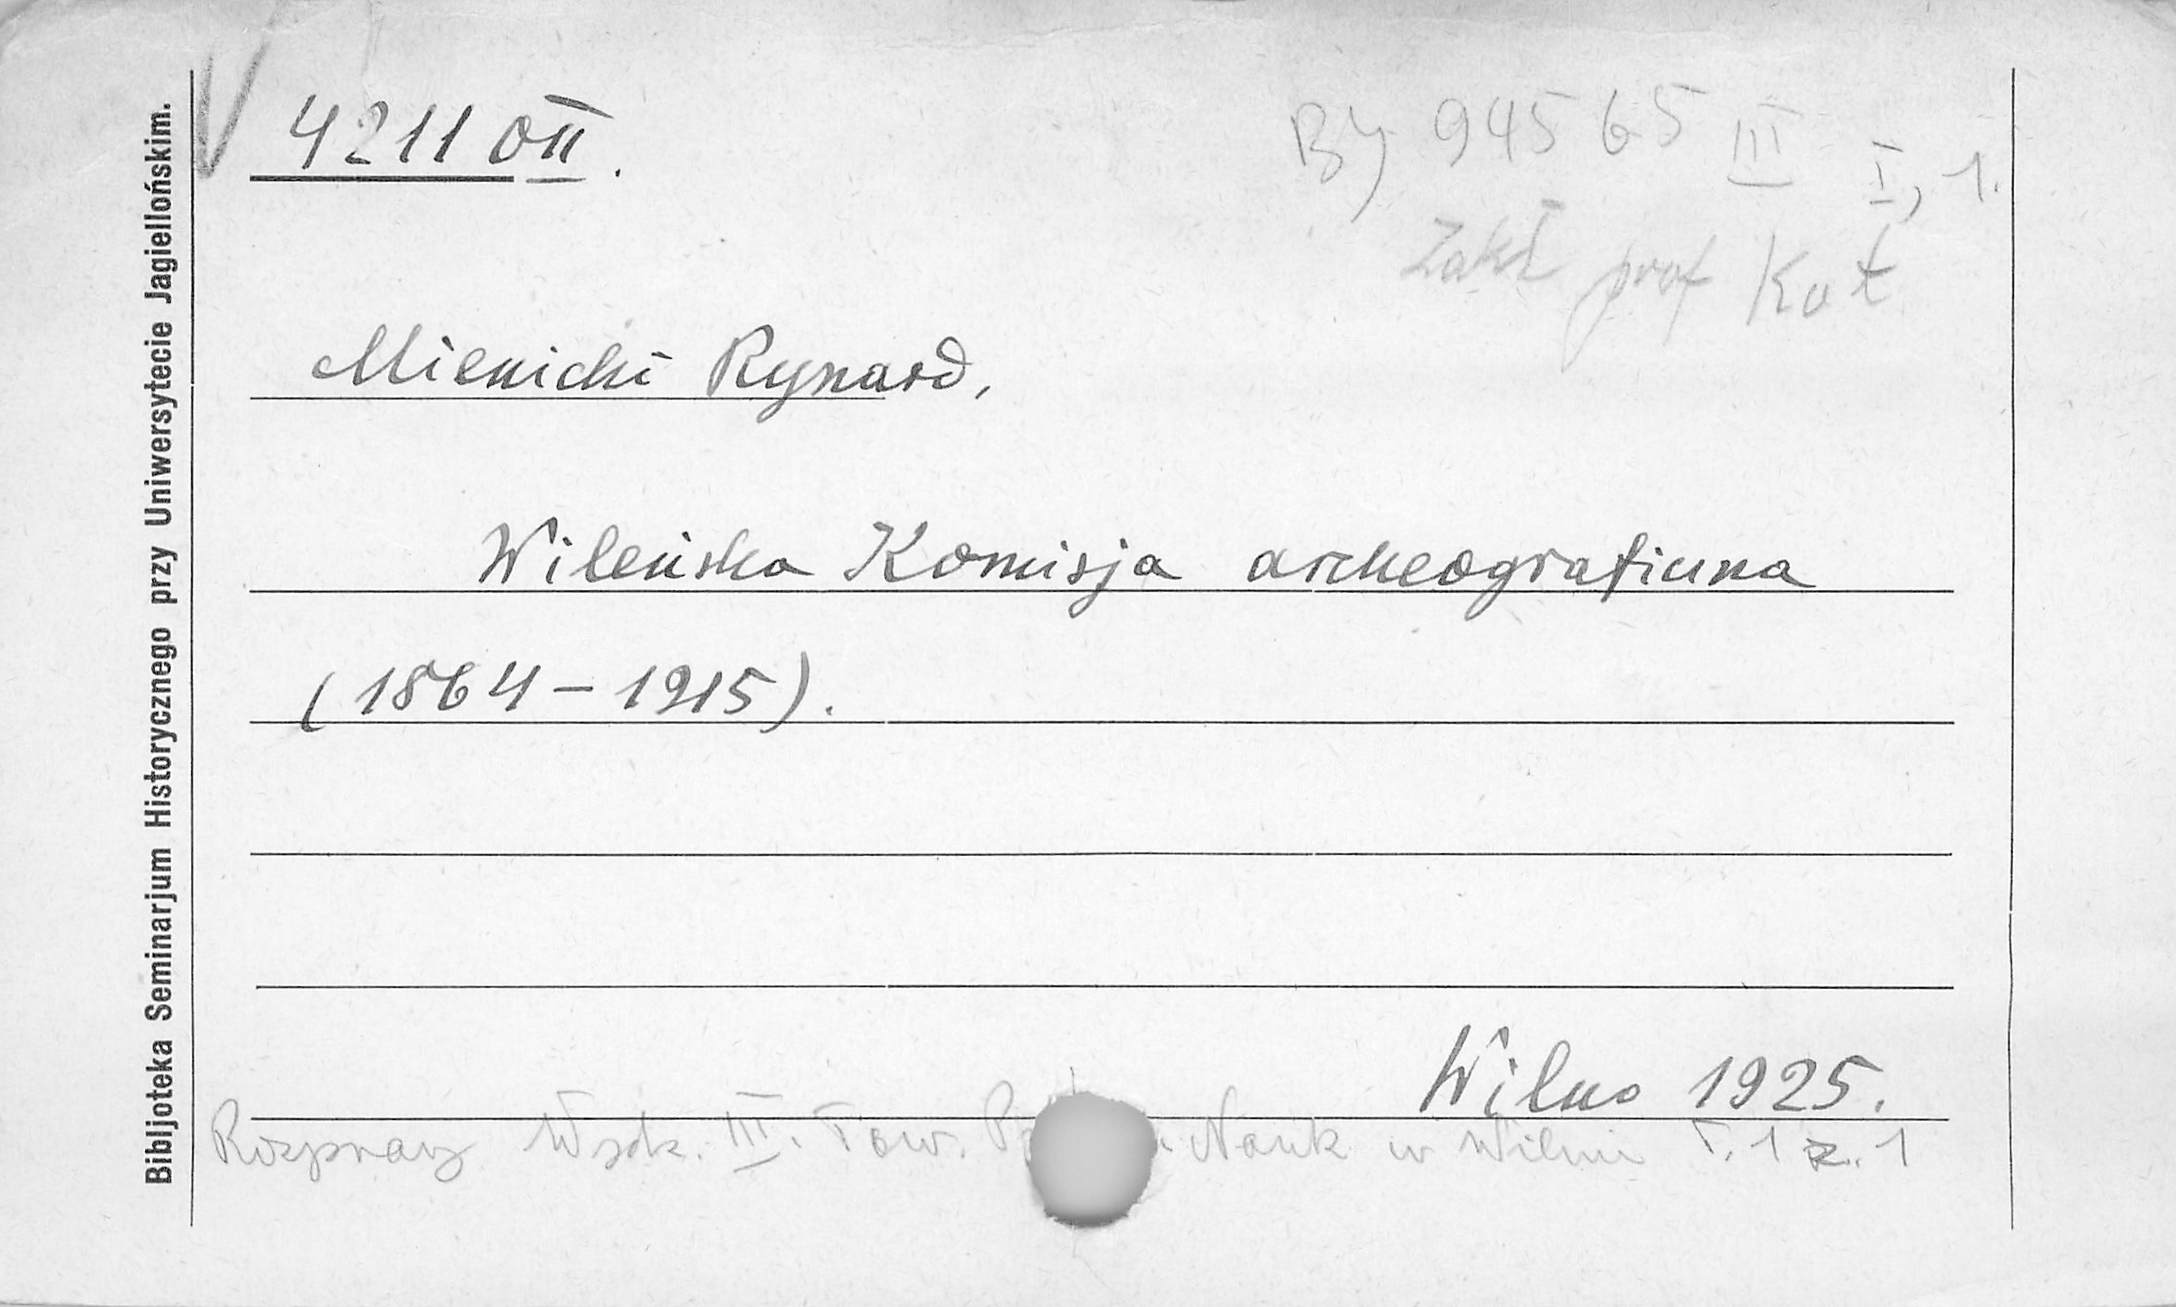 Bibljoteka Seminarjum Historycznego przy Uniwersytecie Jagiellońskim.
V 4211 OII.
By 94565 III I, 1.
Zakł prof Kot
Mienicki Rynard,
Wileńska Komisja archeograficzna
(1864-1915).
Wilno 1925.
Rozprawy Wydz. III. Tow. Nauk w Wilnie T. 1 z. 1